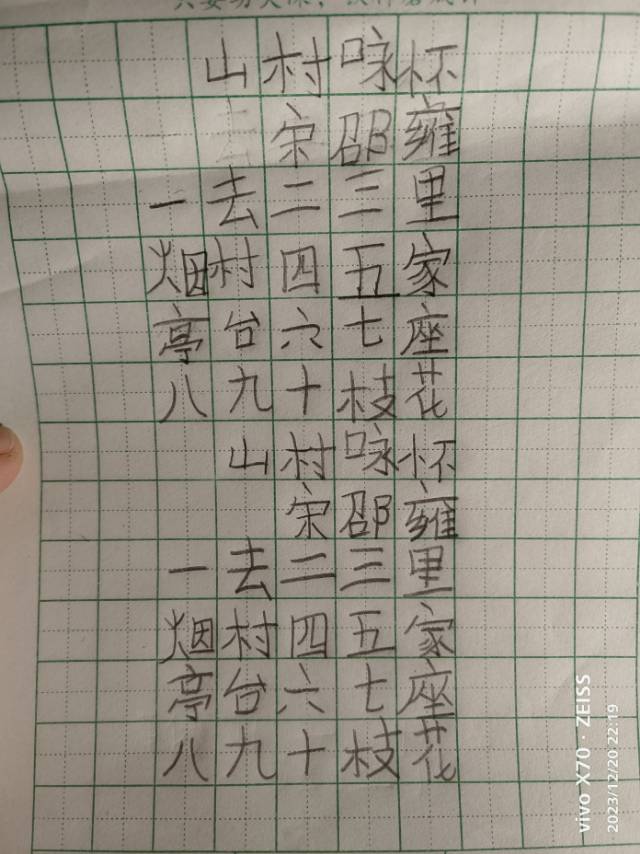 山村咏怀
宋邵雍
一去二三里
烟村四五家
亭台六七座
八九十枝花
山村咏怀
宋邵雍
一去二三里
烟村四五家
亭台六七座
八九十枝花
vivo X70 · ZEISS
2023/12/20 22:19